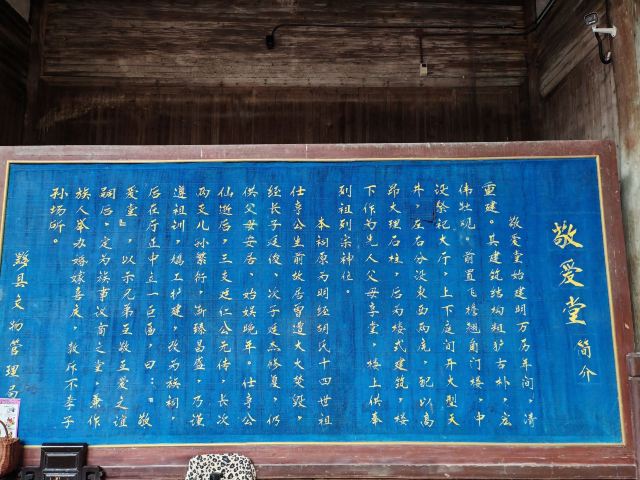 敬爱堂 简介
敬爱堂始建明万历年间，清
重建。其建筑结构粗犷古朴，宏
伟壮观。前置飞檐翘角门楼，中
设祭祀大厅，上下庭间开大型天
井，左右分设东西两庑，配以高
昂大理石柱，后为楼式建筑，楼
下作为先人父母享堂，楼上供奉
列祖列宗神位。
本祠原为明经胡氏十四世祖
仕亨公生前故居曾遭大火焚毁，
经长子廷俊、次子廷杰修复，仍
供父母安居，始娱晚年。仕亨公
仙逝后，三支延仁公无传，长次
两支儿孙繁衍，渐臻昌盛，乃谨
遵祖训，鸠工扩建，改为族祠，
后在厅正中立一巨匾曰：『敬
爱堂』，以示兄弟至敬互爱之谊
嗣后，定为族事议商之堂，兼作
族人举办婚嫁喜庆，教斥不孝子
孙场所。
黟县文物管理局